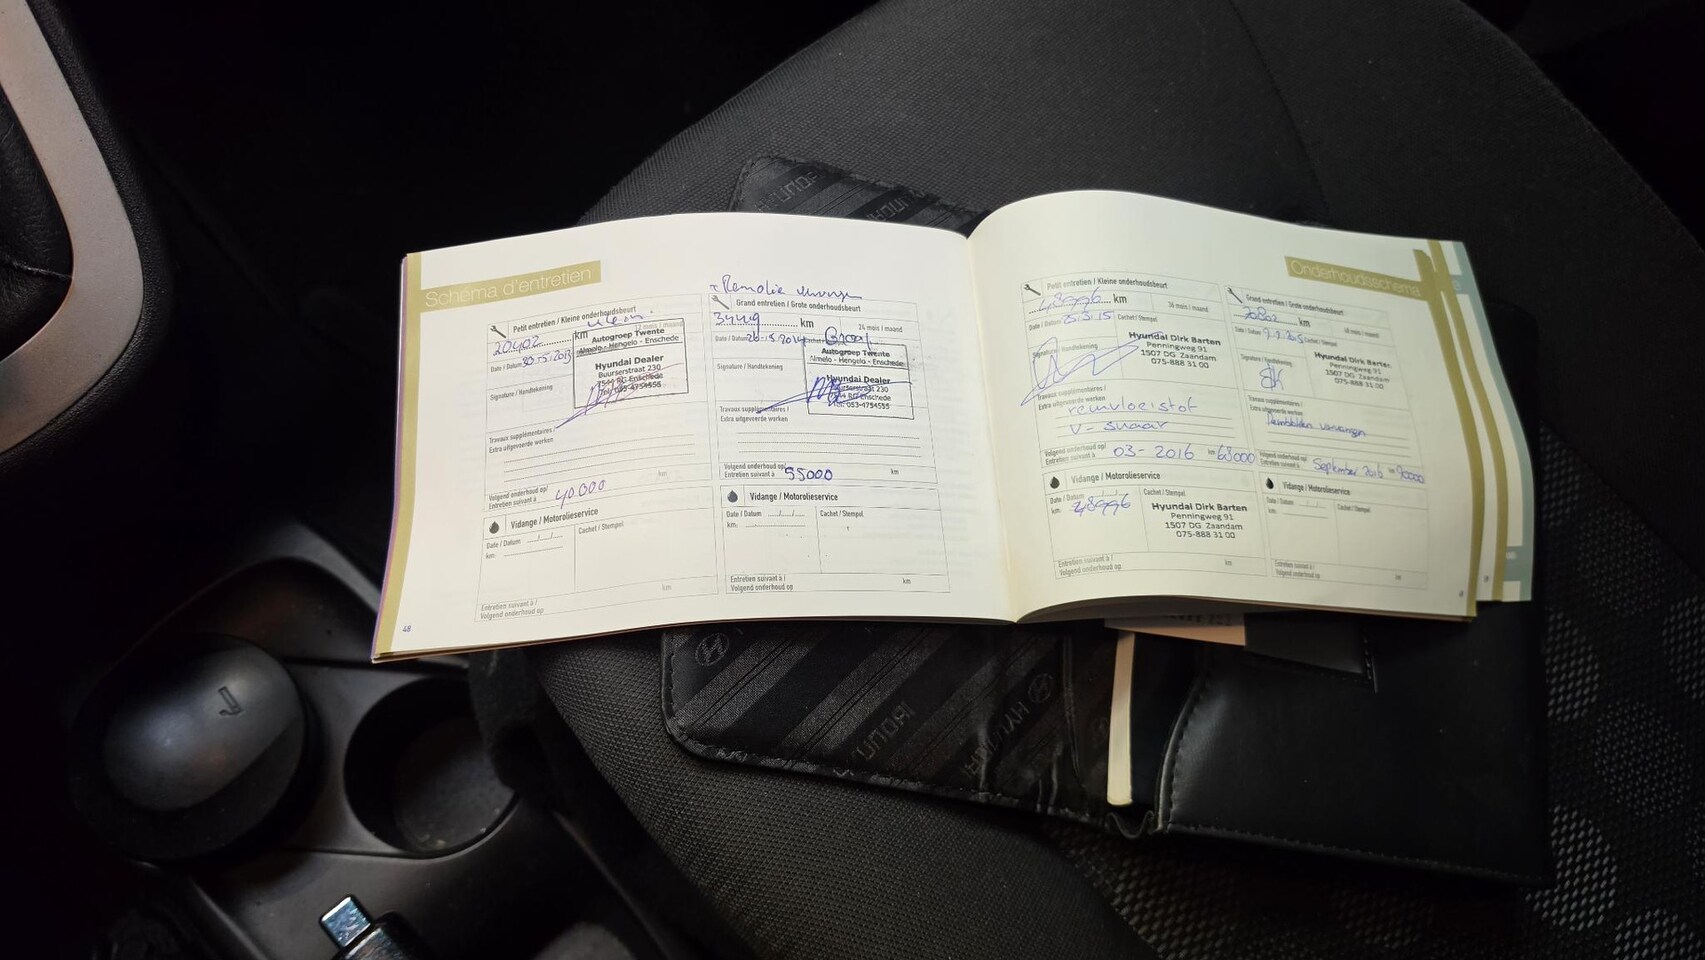 Schéma d'entretien
Petit entretien / Kleine onderhoudsbeurt
klein
20402 km
12 mois / maand
Date / Datum 30-5-2013
Autogroep Twente
Almelo - Hengelo - Enschede
Hyundai Dealer
Buurserstraat 230
7544 RG Enschede
Tel: 053-4754555
Signature / Handtekening
Travaux supplémentaires /
Extra uitgevoerde werken
km
Volgend onderhoud op/
Entretien suivant à 40.000
Vidange / Motorolieservice
Date / Datum
Cachet / Stempel
km:
Entretien suivant à /
Volgend onderhoud op
km
48
Remolie vervangen
Grand entretien / Grote onderhoudsbeurt
km
24 mois / maand
Date / Datum
Groot
Autogroep Twente
Almelo - Hengelo - Enschede
Hyundai Dealer
Buurserstraat 230
7544 RG Enschede
Tel: 053-4754555
Signature / Handtekening
Travaux supplémentaires /
Extra uitgevoerde werken
Volgend onderhoud op/
Entretien suivant à 55000 km
Vidange / Motorolieservice
Date / Datum
Cachet / Stempel
km:
Entretien suivant à /
Volgend onderhoud op
km
Onderhoudsschema
Petit entretien / Kleine onderhoudsbeurt
48996 km
36 mois / maand
Date / Datum 25-3-15
Cachet / Stempel
Hyundai Dirk Barten
Penningweg 91
1507 DG Zaandam
075-888 31 00
Signature / Handtekening
Travaux supplémentaires /
Extra uitgevoerde werken
remvloeistof
V-snaar
Volgend onderhoud op/
Entretien suivant à 03-2016 km 68000
Vidange / Motorolieservice
Date / Datum
Cachet / Stempel
km: 48996
Hyundai Dirk Barten
Penningweg 91
1507 DG Zaandam
075-888 31 00
Entretien suivant à /
Volgend onderhoud op
km
Grand entretien / Grote onderhoudsbeurt
70802 km
48 mois / maand
Date / Datum 9-9-2015
Cachet / Stempel
Hyundai Dirk Barten
Penningweg 91
1507 DG Zaandam
075-888 31 00
Signature / Handtekening
Travaux supplémentaires /
Extra uitgevoerde werken
vervangen
Volgend onderhoud op/
Entretien suivant à September 2016 km 90000
Vidange / Motorolieservice
Date / Datum
Cachet / Stempel
km:
Entretien suivant à /
Volgend onderhoud op
km
HYUNDAI